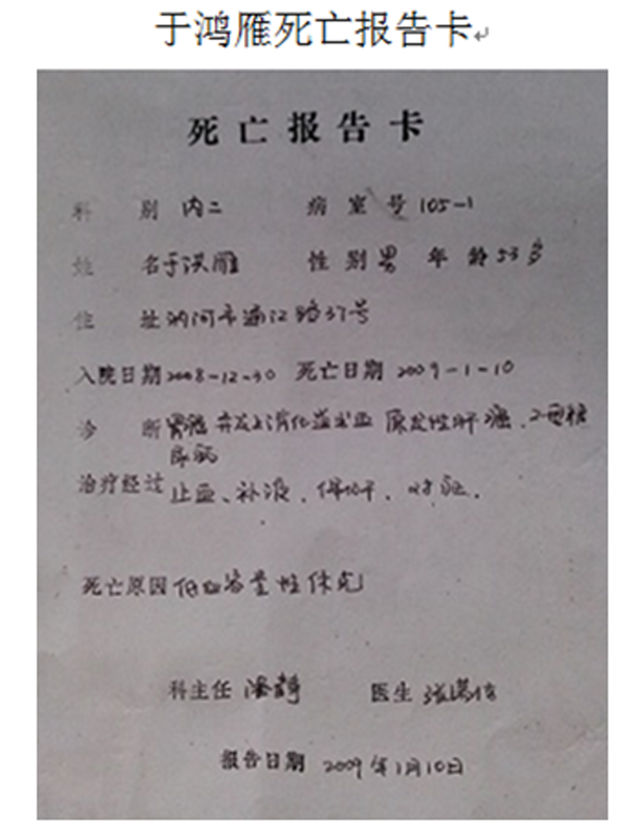 于鸿雁死亡报告卡
死亡报告卡
科 别 内二 病室号 105-1
姓 名 于洪雁 性别 男 年龄 53岁
住 址 讷河市通江路37号
入院日期 2008-12-30 死亡日期 2009-1-10
诊 断 胃癌并发上消化道出血 原发性肝癌、2型糖
尿病
治疗经过 止血、补液、保肝、对症.
死亡原因 低血容量性休克
科主任 医生
报告日期 2009年1月10日